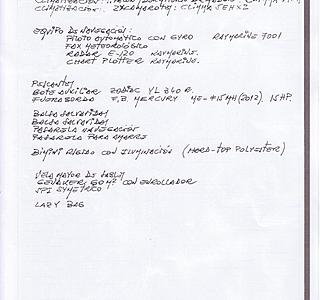 EQUIPO DE NAVEGACIÓN:
PILOTO AUTOMÁTICO CON GYRO RAYMARINE 7001
FAX METEOROLÓGICO
RADAR E-120 RAYMARINE.
CHART PLOTTER RAYMARINE.
PESCANTES
BOTE AUXILIAR ZODIAC YL 340 R.
FUERABORDA F.B. MERCURY ME- 15MH (2012). 15 HP.
BALSA SALVAVIDAS
BALSA SALVAVIDAS
PASARELA NAVEGACIÓN
PASARELA PARA AMARRE
BIMINI RÍGIDO CON ILUMINACIÓN (HARD-TOP POLYESTER)
VELA MAYOR DE
GENAKER 60 M² CON ENROLLADOR
SPI SIMETRICO
LAZY BAG